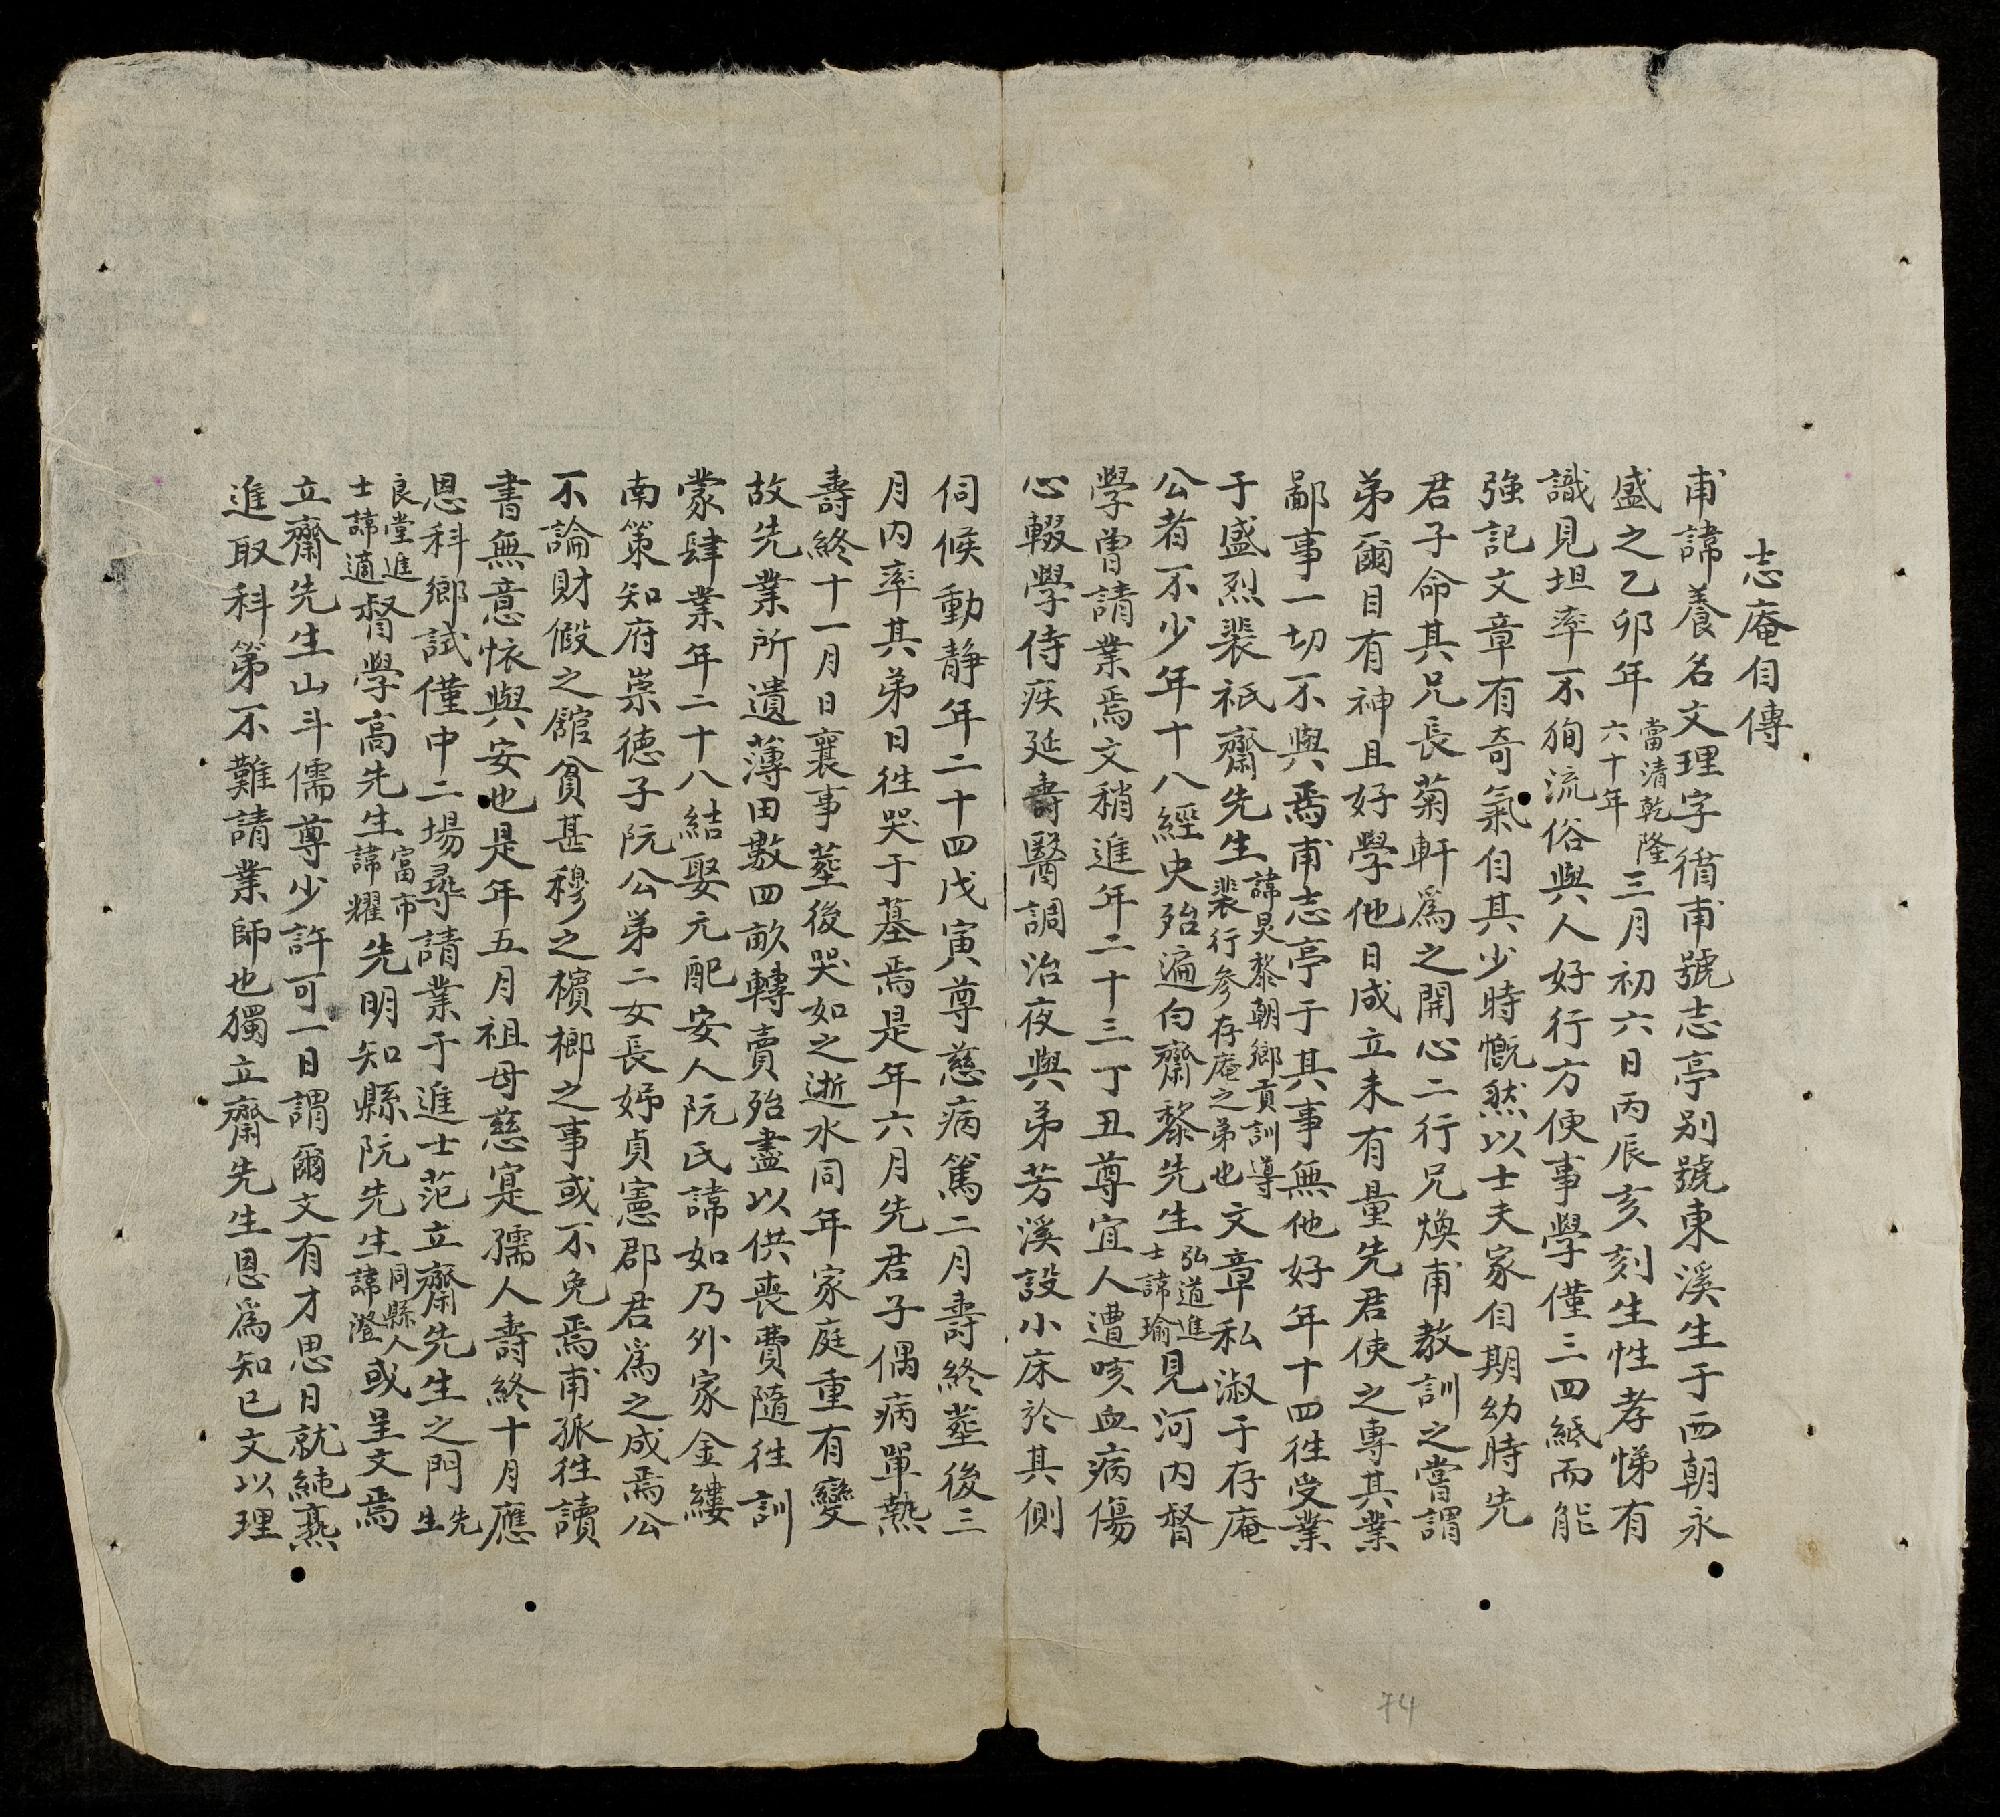 志庵自傳
甫諱養名文理字循甫號志亭别號東溪生于西朝永
盛之乙卯年當清乾隆六十年三月初六日丙辰亥刻生性孝悌有
識見坦率不徇流俗與人好行方便事學僅三四紙而能
強記文章有奇氣自其少時慨然以士夫家自期幼時先
君子命其兄長菊軒爲之開心二行兄煥甫教訓之嘗謂
弟爾目有神且好學他日成立未有量先君使之專其業
鄙事一切不與焉甫志亭于其事無他好年十四徃受業
于盛烈裴祇齋先生諱炅黎朝鄉貢訓導裴行参存庵之弟也文章私淑于存庵
公者不少年十八經史殆遍白齋黎先生弘道進士諱瑜見河内督
學曾請業焉文稍進年二十三丁丑尊宜人遭咳血病傷
心輟學侍疾延壽醫調治夜與弟芳溪設小床於其側
伺候動静年二十四戊寅尊慈病篤二月壽終塟後三
月内率其弟日徃哭于墓焉是年六月先君子偶病單熱
壽終十一月日襄事塟後哭如之逝水同年家庭重有變
故先業所遺薄田數四畝轉賣殆盡以供喪費隨徃訓
蒙肆業年二十八結娶元配安人阮氏諱如乃外家金縷
南策知府崇德子阮公弟二女長姊貞憲郡君爲之成焉公
不論財假之館貧甚穆之檳榔之事或不免焉甫孤徃讀
書無意恢與安也是年五月祖母慈寔孺人壽終十月應
恩科鄉試僅中二場尋請業于進士范立齋先生之門先生
良堂進士諱適督學高先生富市諱耀先明知縣阮先生同縣人諱澄或呈文焉
立齋先生山斗儒尊少許可一日謂爾文有才思日就純熟
進取科第不難請業師也獨立齋先生恩爲知已文以理